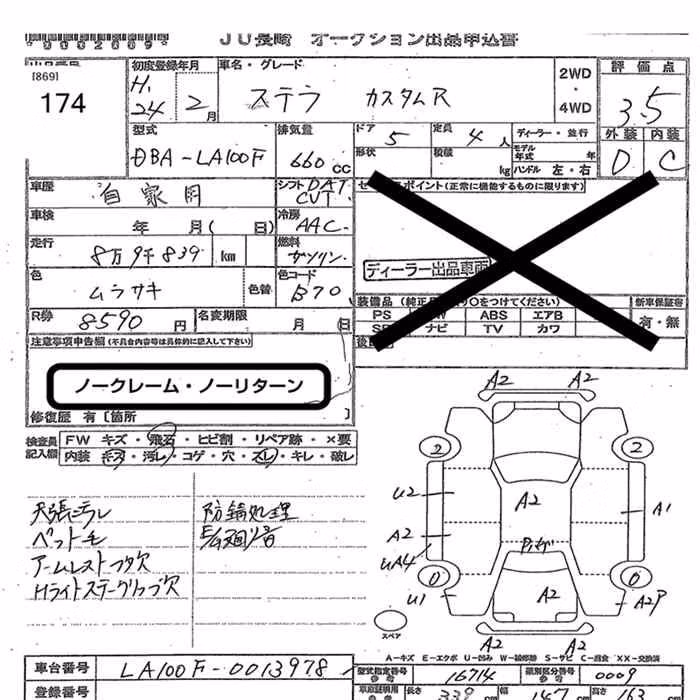 *0002009*
JU長崎 オークション出品申込書
[869]
174
初度登録年月
H.24 2月
車名・グレード
ステラ カスタムR
2WD・4WD
評価点
3.5
外装 内装
D C
型式
DBA-LA100F
排気量
660 CC
ドア 5
定員 4人
ディーラー・並行
形状
積載 kg
モデル年式 年
ハンドル 左・右
車歴 自家用
シフト DAT CVT
セールスポイント(正常に機能するものに限ります)
車検 年 月(日)
冷房 AAC
走行 8万9千839 km
燃料 ガソリン
ディーラー出品車両
色 ムラサキ
色替
色コード B70
装備品(純正品のみ○をつけてください)
新車保証書
有・無
PS ABS エアB
ナビ TV カワ
R券 8590円
名変期限 月 日
注意事項申告欄(不具合内容等は具体的に記入して下さい)
ノークレーム・ノーリターン
修復歴 有〔箇所 〕
検査員記入欄
FW キズ・飛石・ヒビ割・リペア跡・×要
内装 キズ・汚レ・コゲ・穴・スレ・キレ・破レ
ペット毛
防錆処理
A2 A2
2 2
U2 A2 A1
A2
UA4
0 0
U1 A2 A2P
A2
スペア
A-キズ E-エクボ U-凹み W-補修跡 S-サビ C-腐食 XX-交換済
車台番号 LA100F-0013978
型式指定番号 16714
類別区分番号 0009
登録番号
長さ 339 幅 147 高さ 163